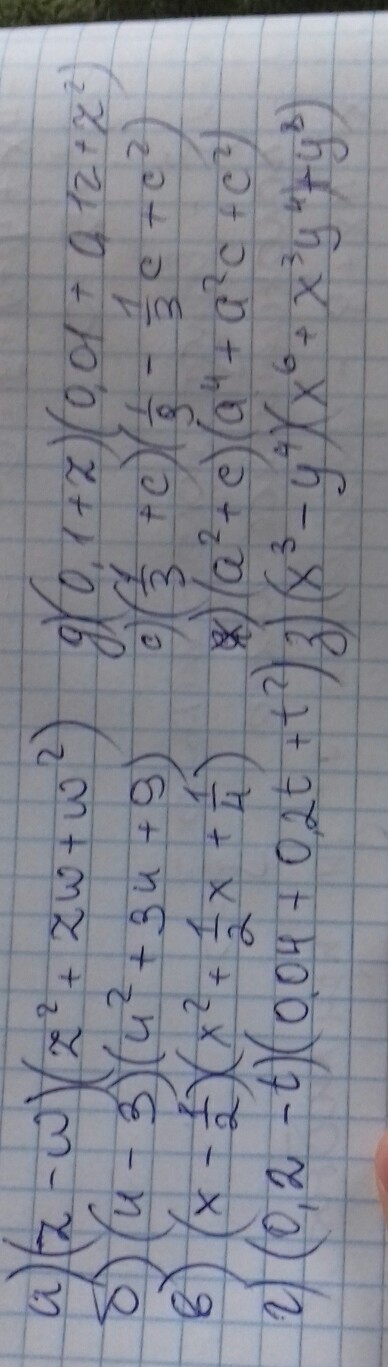 а) (z - w)(z² + zw + w²)
б) (u - 3)(u² + 3u + 9)
в) (x - 1/2)(x² + 1/2x + 1/4)
г) (0,2 - t)(0,04 + 0,2t + t²)
д) (0,1 + z)(0,01 + 0,1z + z²)
е) (1/3 + c)(1/9 - 1/3c + c²)
ж) (a² + c)(a⁴ + a²c + c²)
з) (x³ - y⁴)(x⁶ + x³y⁴ + y⁸)